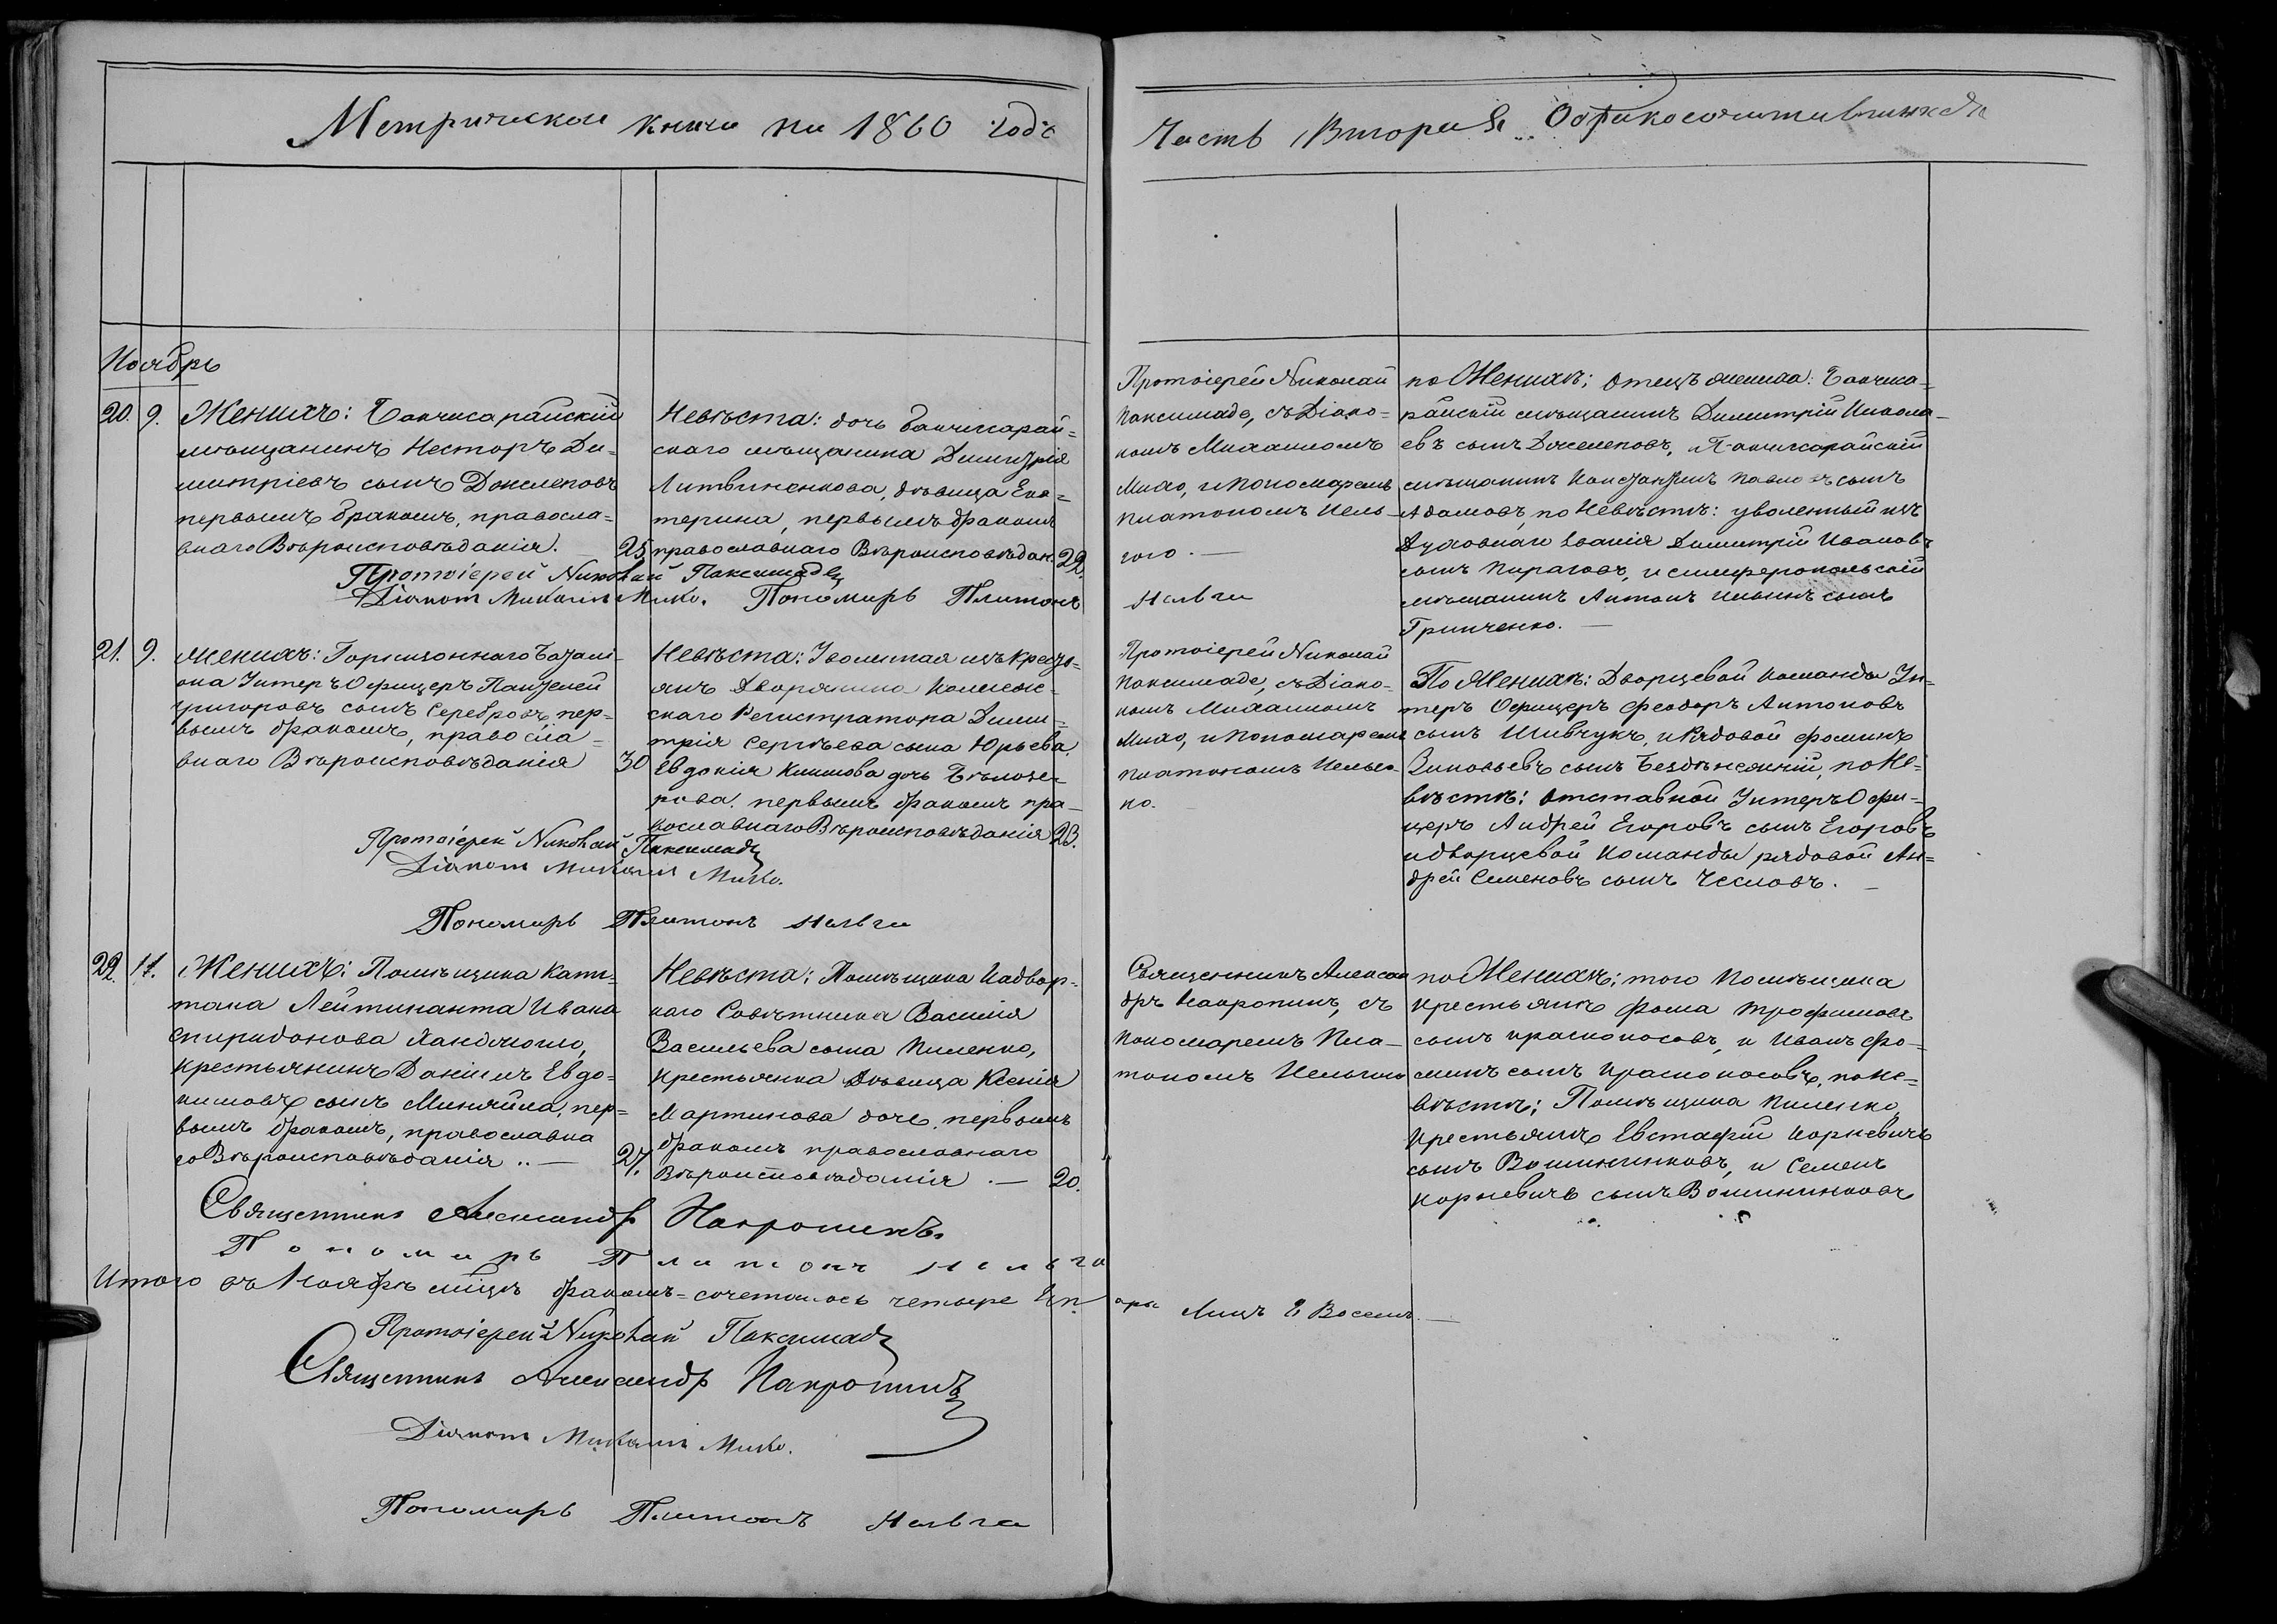 Метрической книги на 1860 годъ
Часть Вторая
Ноябрь
20. 9. Женихъ: Бакчисарайский
мѣщанинъ Несторъ Ди-
митріевъ сынъ Джелеповъ
первымъ бракомъ, правосла-
внаго Вѣроисповѣданія. — 25.
Невѣста: дочь Бакчисарай-
скаго мѣщанина Димитрія
Литвиненкова, дѣвица Ека-
терина, первымъ бракомъ
православнаго Вѣроисповѣдан. 22.
Протоіерей Николай Паксимаде
Діаконъ Михаилъ Мико. Пономарь Платонъ
Протоіерей Николай
Паксимаде, съ Діако-
номъ Михаиломъ
Мико, и Пономаремъ
Платономъ Нель-
гою. —
Нельга
по Женихѣ: отецъ жениха: Бакчиса-
райскій мѣщанинъ Димитрій Никола-
евъ сынъ Джелеповъ, Бакчисарайскій
мѣщанинъ Константинъ Павловъ сынъ
Адамовъ, по Невѣстѣ: уволенный изъ
Духовнаго званія Димитрій Ивановъ
сынъ Пираговъ, и симферопольскій
мѣщанинъ Антонъ Ильинъ сынъ
Гринченко. —
21. 9. Женихъ: Гарнизоннаго Баталі-
она Унтеръ Офицеръ Пантелей
Григоровъ сынъ Серебровъ, пер-
вымъ бракомъ, правосла-
внаго Вѣроисповѣданія 30
Невѣста: Уволенная изъ Кресть-
янъ Дворянина Коллеж-
скаго Регистратора Дими-
трія Сергѣева сына Юрьева
Евдокія Климова дочь
первымъ бракомъ пра-
вославнаго Вѣроисповѣданія 23.
Протоіерей Николай Паксимаде
Діаконъ Михаилъ Мико.
Пономарь Платонъ Нельга
Протоіерей Николай
Паксимаде, съ Діако-
номъ Михаиломъ
Мико, и Пономаремъ
Платономъ Нельго-
ю.
По Женихѣ: Дворцевой Команды Ун-
теръ Офицеръ Феодоръ Антоновъ
сынъ Шивчукъ, и Рядовой Фоминъ
Зиновьевъ сынъ по Не-
вѣстѣ: отставной Унтеръ Офи-
церъ Андрей Егоровъ сынъ Егоровъ
и дворцевой Команды рядовой Ан-
дрей Семеновъ сынъ Чесловъ. —
22. 11. Женихъ: Помѣщика Капи-
тана Лейтинанта Ивана
Спиридонова
крестьянинъ Даніилъ Евдо-
кимовъ сынъ Миняйла, пер-
вымъ бракомъ, православна
го Вѣроисповѣданія .. — 27.
Невѣста: Помѣщика Надвор-
наго Совѣтника Василія
Васильева сына Пиленко,
крестьянка Дѣвица Ксенія
Мартинова дочь, первымъ
бракомъ православнаго
Вѣроисповѣданія. — 20.
Священникъ Александръ Накропинъ.
Пономарь Платонъ Нельга
Священникъ Алексан
дръ Накропинъ, съ
Пономаремъ Пла-
тономъ Нельгою
по Женихѣ: того Помѣщика
крестьяне Фома Трофимовъ
сынъ Красноносовъ, и Иванъ Фо-
минъ сынъ Красноносовъ, по Не-
вѣстѣ: Помѣщика Пиленко
крестьяне Евстафій Корневичъ
сынъ Вошининковъ, и Семенъ
Корневичъ сынъ Вошининковъ
Итого въ Ноябрѣ мѣцѣ бракомъ-сочеталось четыре
Лицъ 8 Восемь. —
Протоіерей Николай Паксимаде
Священникъ Александръ Накропинъ
Діаконъ Михаилъ Мико.
Пономарь Платонъ Нельга